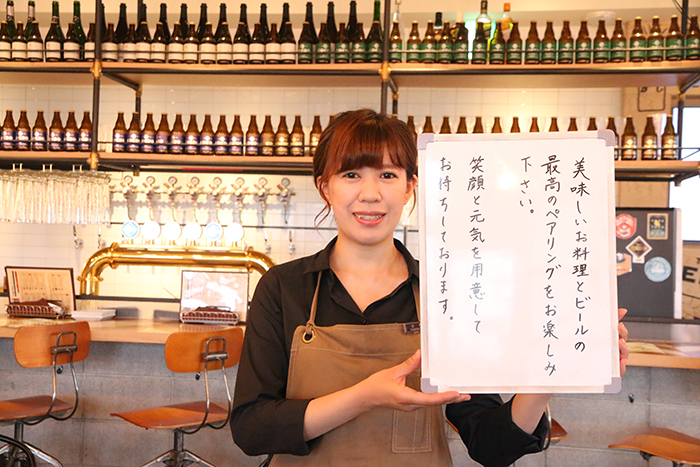 美味しいお料理とビールの
最高のペアリングをお楽しみ
下さい。
笑顔と元気を用意して
お待ちしております。